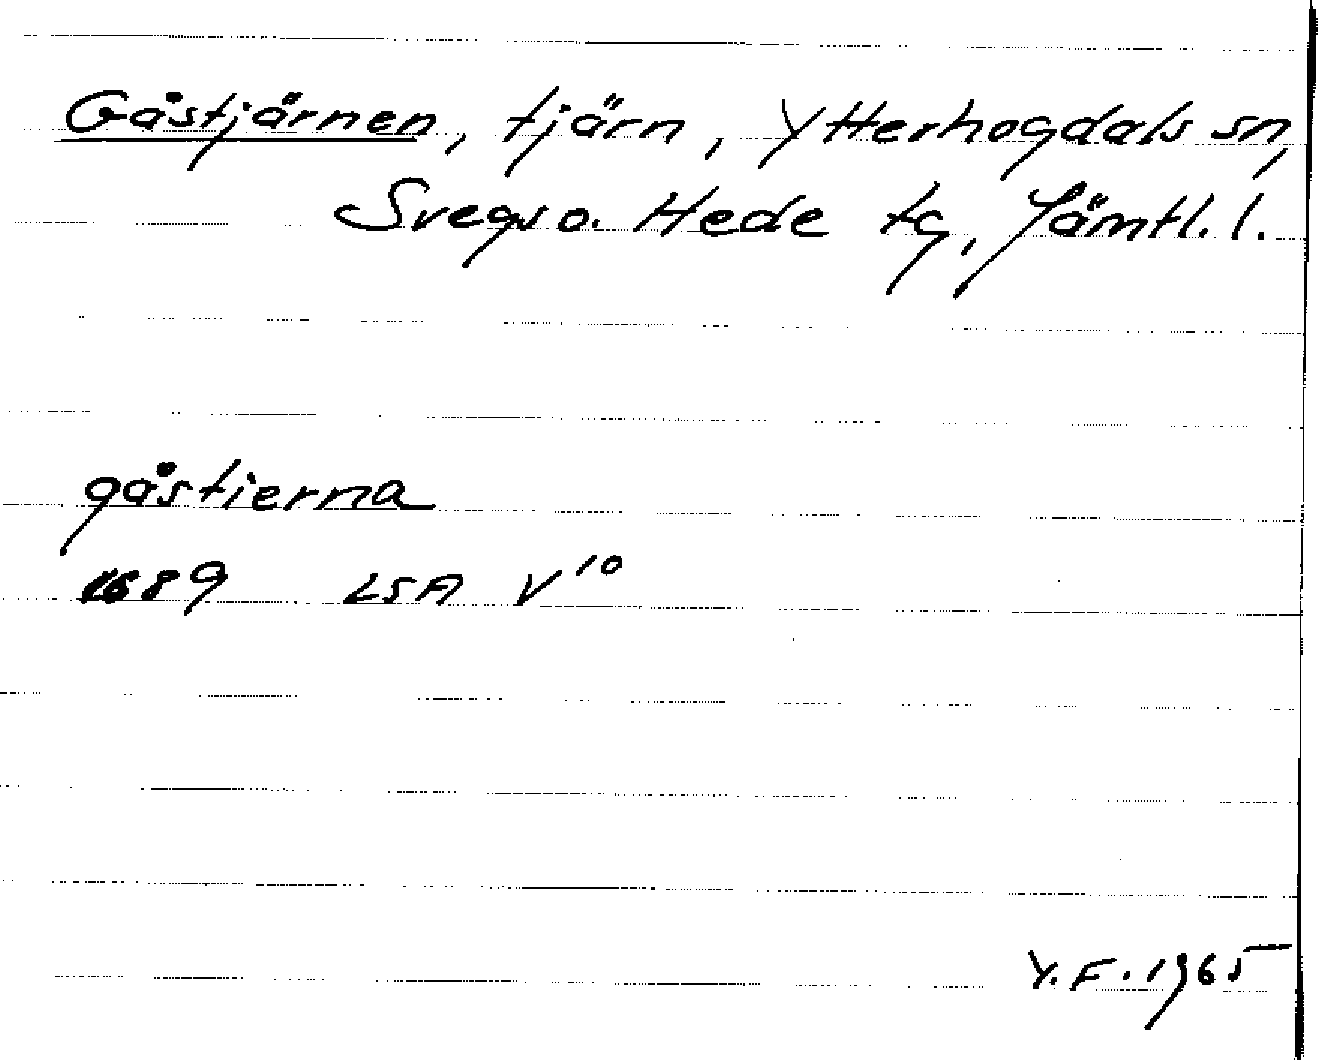 Gåstjärnen, tjärn, Ytterhogdals sn,
Svegs o. Hede tg, Jämtl. l.
gåstierna
1689 LSA V 10
Y.F. 1965